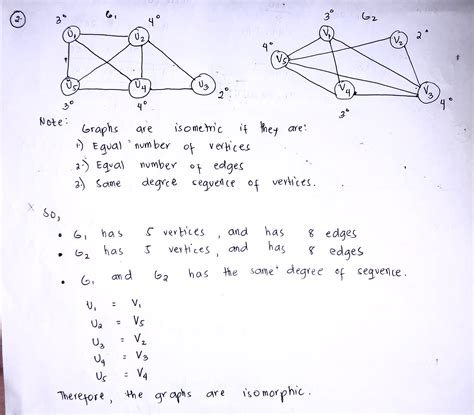 2. 3° G1 4° 3° G2
U1 U2 V1 V2 2°
4° V5
U5 U4 U3 2° V4 V3 4°
3° 4° 3°
Note:
Graphs are isometric if they are:
1) Equal number of vertices
2.) Equal number of edges
3) Same degree sequence of vertices.
x So,
• G1 has 5 vertices, and has 8 edges
• G2 has 5 vertices, and has 8 edges
• G1 and G2 has the same degree of sequence.
U1 = V1
U2 = V5
U3 = V2
U4 = V3
U5 = V4
Therefore, the graphs are isomorphic.